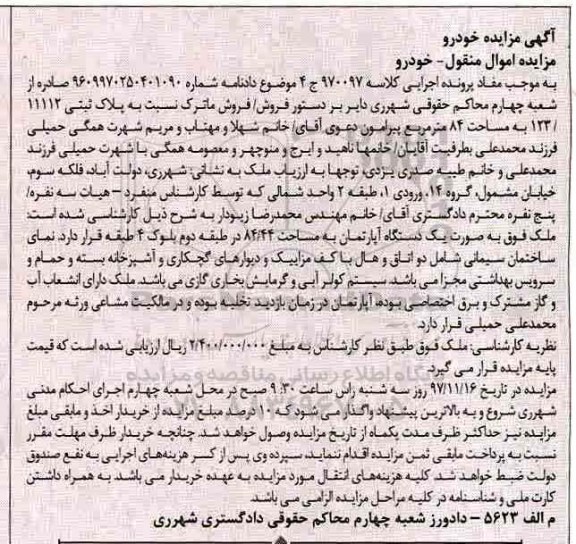 آگهی مزایده خودرو
مزایده اموال منقول- خودرو
به موجب مفاد پرونده اجرایی کلاسه ۹۷۰۰۹۷ ج ۴ موضوع دادنامه شماره ۹۶۰۹۹۷۰۲۵۰۴۰۱۰۹۰ صادره از
شعبه چهارم محاکم حقوقی شهرری دایر بر دستور فروش/ فروش ماترک نسبت به پلاک ثبتی ۱۱۱۱۲
/۱۲۳ به مساحت ۸۴ مترمربع پیرامون دعوی آقای/ خانم شهلا و مهتاب و مریم شهرت همگی حمیلی
فرزند محمدعلی بطرفیت آقایان/ خانمها ناهید و ایرج و منوچهر و معصومه همگی با شهرت حمیلی فرزند
محمدعلی و خانم طیبه صدری یزدی، توجها به ارزیاب ملک به نشانی: شهرری، دولت آباد، فلکه سوم،
خیابان مشمول، گروه ۱۴، ورودی ۱، طبقه ۲ واحد شمالی که توسط کارشناس منفرد – هیات سه نفره/
پنج نفره محترم دادگستری آقای/ خانم مهندس محمدرضا زیودار به شرح ذیل کارشناسی شده است:
ملک فوق به صورت یک دستگاه آپارتمان به مساحت ۸۴/۴۴ در طبقه دوم بلوک ۴ طبقه قرار دارد. نمای
ساختمان سیمانی شامل دو اتاق و هال با کف مزاییک و دیوارهای گچکاری و آشپزخانه بسته و حمام و
سرویس بهداشتی مجزا می باشد. سیستم کولر آبی و گرمایش بخاری گازی می باشد. ملک دارای انشعاب آب
و گاز مشترک و برق اختصاصی بوده، آپارتمان در زمان بازدید تخلیه بوده و در مالکیت مشاعی ورثه مرحوم
محمدعلی حمیلی قرار دارد.
نظریه کارشناسی: ملک فوق طبق نظر کارشناس به مبلغ ۲/۴۰۰/۰۰۰/۰۰۰ ریال ارزیابی شده است که قیمت
پایه مزایده قرار می گیرد.
مزایده در تاریخ ۹۷/۱۱/۱۶ روز سه شنبه راس ساعت ۹:۳۰ صبح در محل شعبه چهارم اجرای احکام مدنی
شهرری شروع و به بالاترین پیشنهاد واگذار می شود که ۱۰ درصد مبلغ مزایده از خریدار اخذ و مابقی مبلغ
مزایده نیز حداکثر ظرف مدت یکماه از تاریخ مزایده وصول خواهد شد. چنانچه خریدار ظرف مهلت مقرر
نسبت به پرداخت مابقی ثمن مزایده اقدام ننماید، سپرده وی پس از کسر هزینه‌های اجرایی به نفع صندوق
دولت ضبط خواهد شد. کلیه هزینه‌های انتقال مورد مزایده به عهده خریدار می باشد. به همراه داشتن
کارت ملی و شناسنامه در کلیه مراحل مزایده الزامی می باشد.
م الف ۵۶۲۳ – دادورز شعبه چهارم محاکم حقوقی دادگستری شهرری